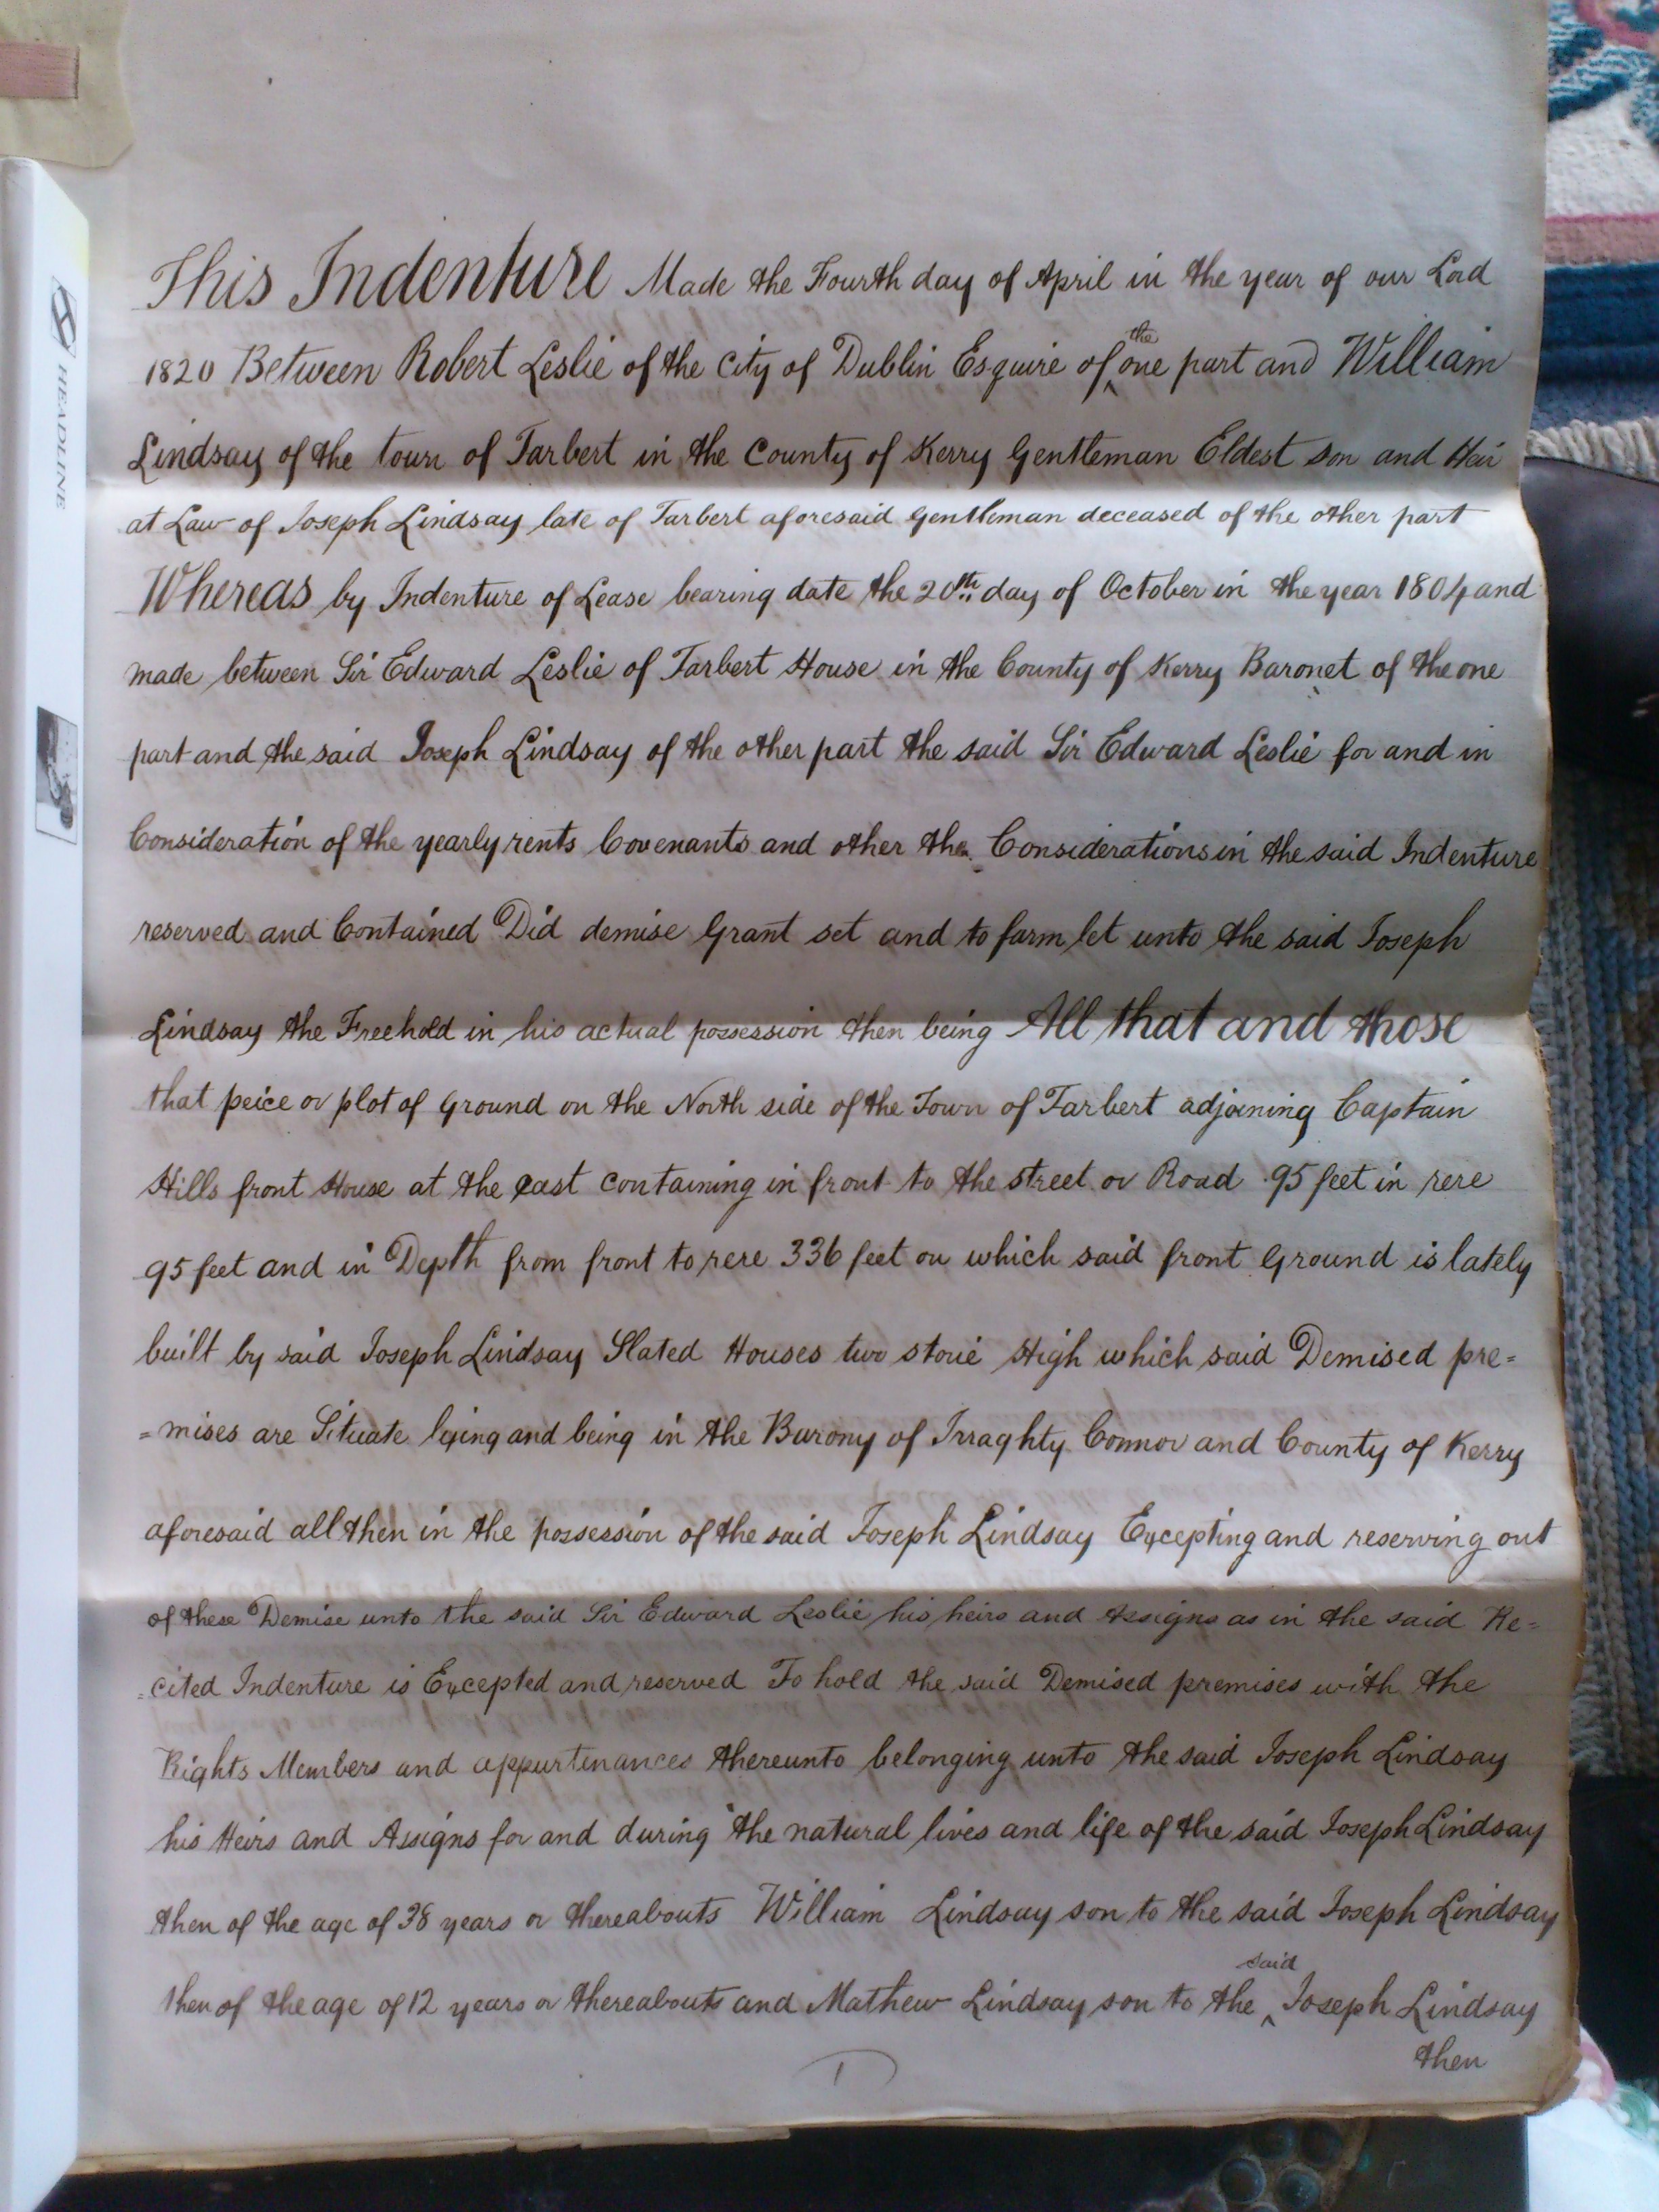 HEADLINE
This Indenture Made the Fourth day of April in the year of our Lord
1820 Between Robert Leslie of the City of Dublin Esquire of the one part and William
Lindsay of the town of Tarbert in the County of Kerry Gentleman Eldest son and Heir
at Law of Joseph Lindsay late of Tarbert aforesaid Gentleman deceased of the other part
Whereas by Indenture of Lease bearing date the 20th day of October in the year 1804 and
made between Sir Edward Leslie of Tarbert House in the County of Kerry Baronet of the one
part and the said Joseph Lindsay of the other part the said Sir Edward Leslie for and in
Consideration of the yearly rents Covenants and other the Considerations in the said Indenture
reserved and Contained Did demise Grant set and to farm let unto the said Joseph
Lindsay the Freehold in his actual possession then being All that and those
that peice or plot of Ground on the North side of the Town of Tarbert adjoining Captain
Hills front House at the east containing in front to the street or Road 95 feet in rere
95 feet and in Depth from front to rere 336 feet on which said front Ground is lately
built by said Joseph Lindsay Slated Houses two storie High which said Demised pre=
=mises are Situate lying and being in the Barony of Irraghty Connor and County of Kerry
aforesaid all then in the possession of the said Joseph Lindsay Excepting and reserving out
of these Demise unto the said Sir Edward Leslie his heirs and Assigns as in the said Re=
=cited Indenture is Excepted and reserved To hold the said Demised premises with the
Rights Members and appurtenances thereunto belonging unto the said Joseph Lindsay
his Heirs and Assigns for and during the natural lives and life of the said Joseph Lindsay
then of the age of 38 years or thereabouts William Lindsay son to the said Joseph Lindsay
then of the age of 12 years or thereabouts and Mathew Lindsay son to the said Joseph Lindsay
then
1